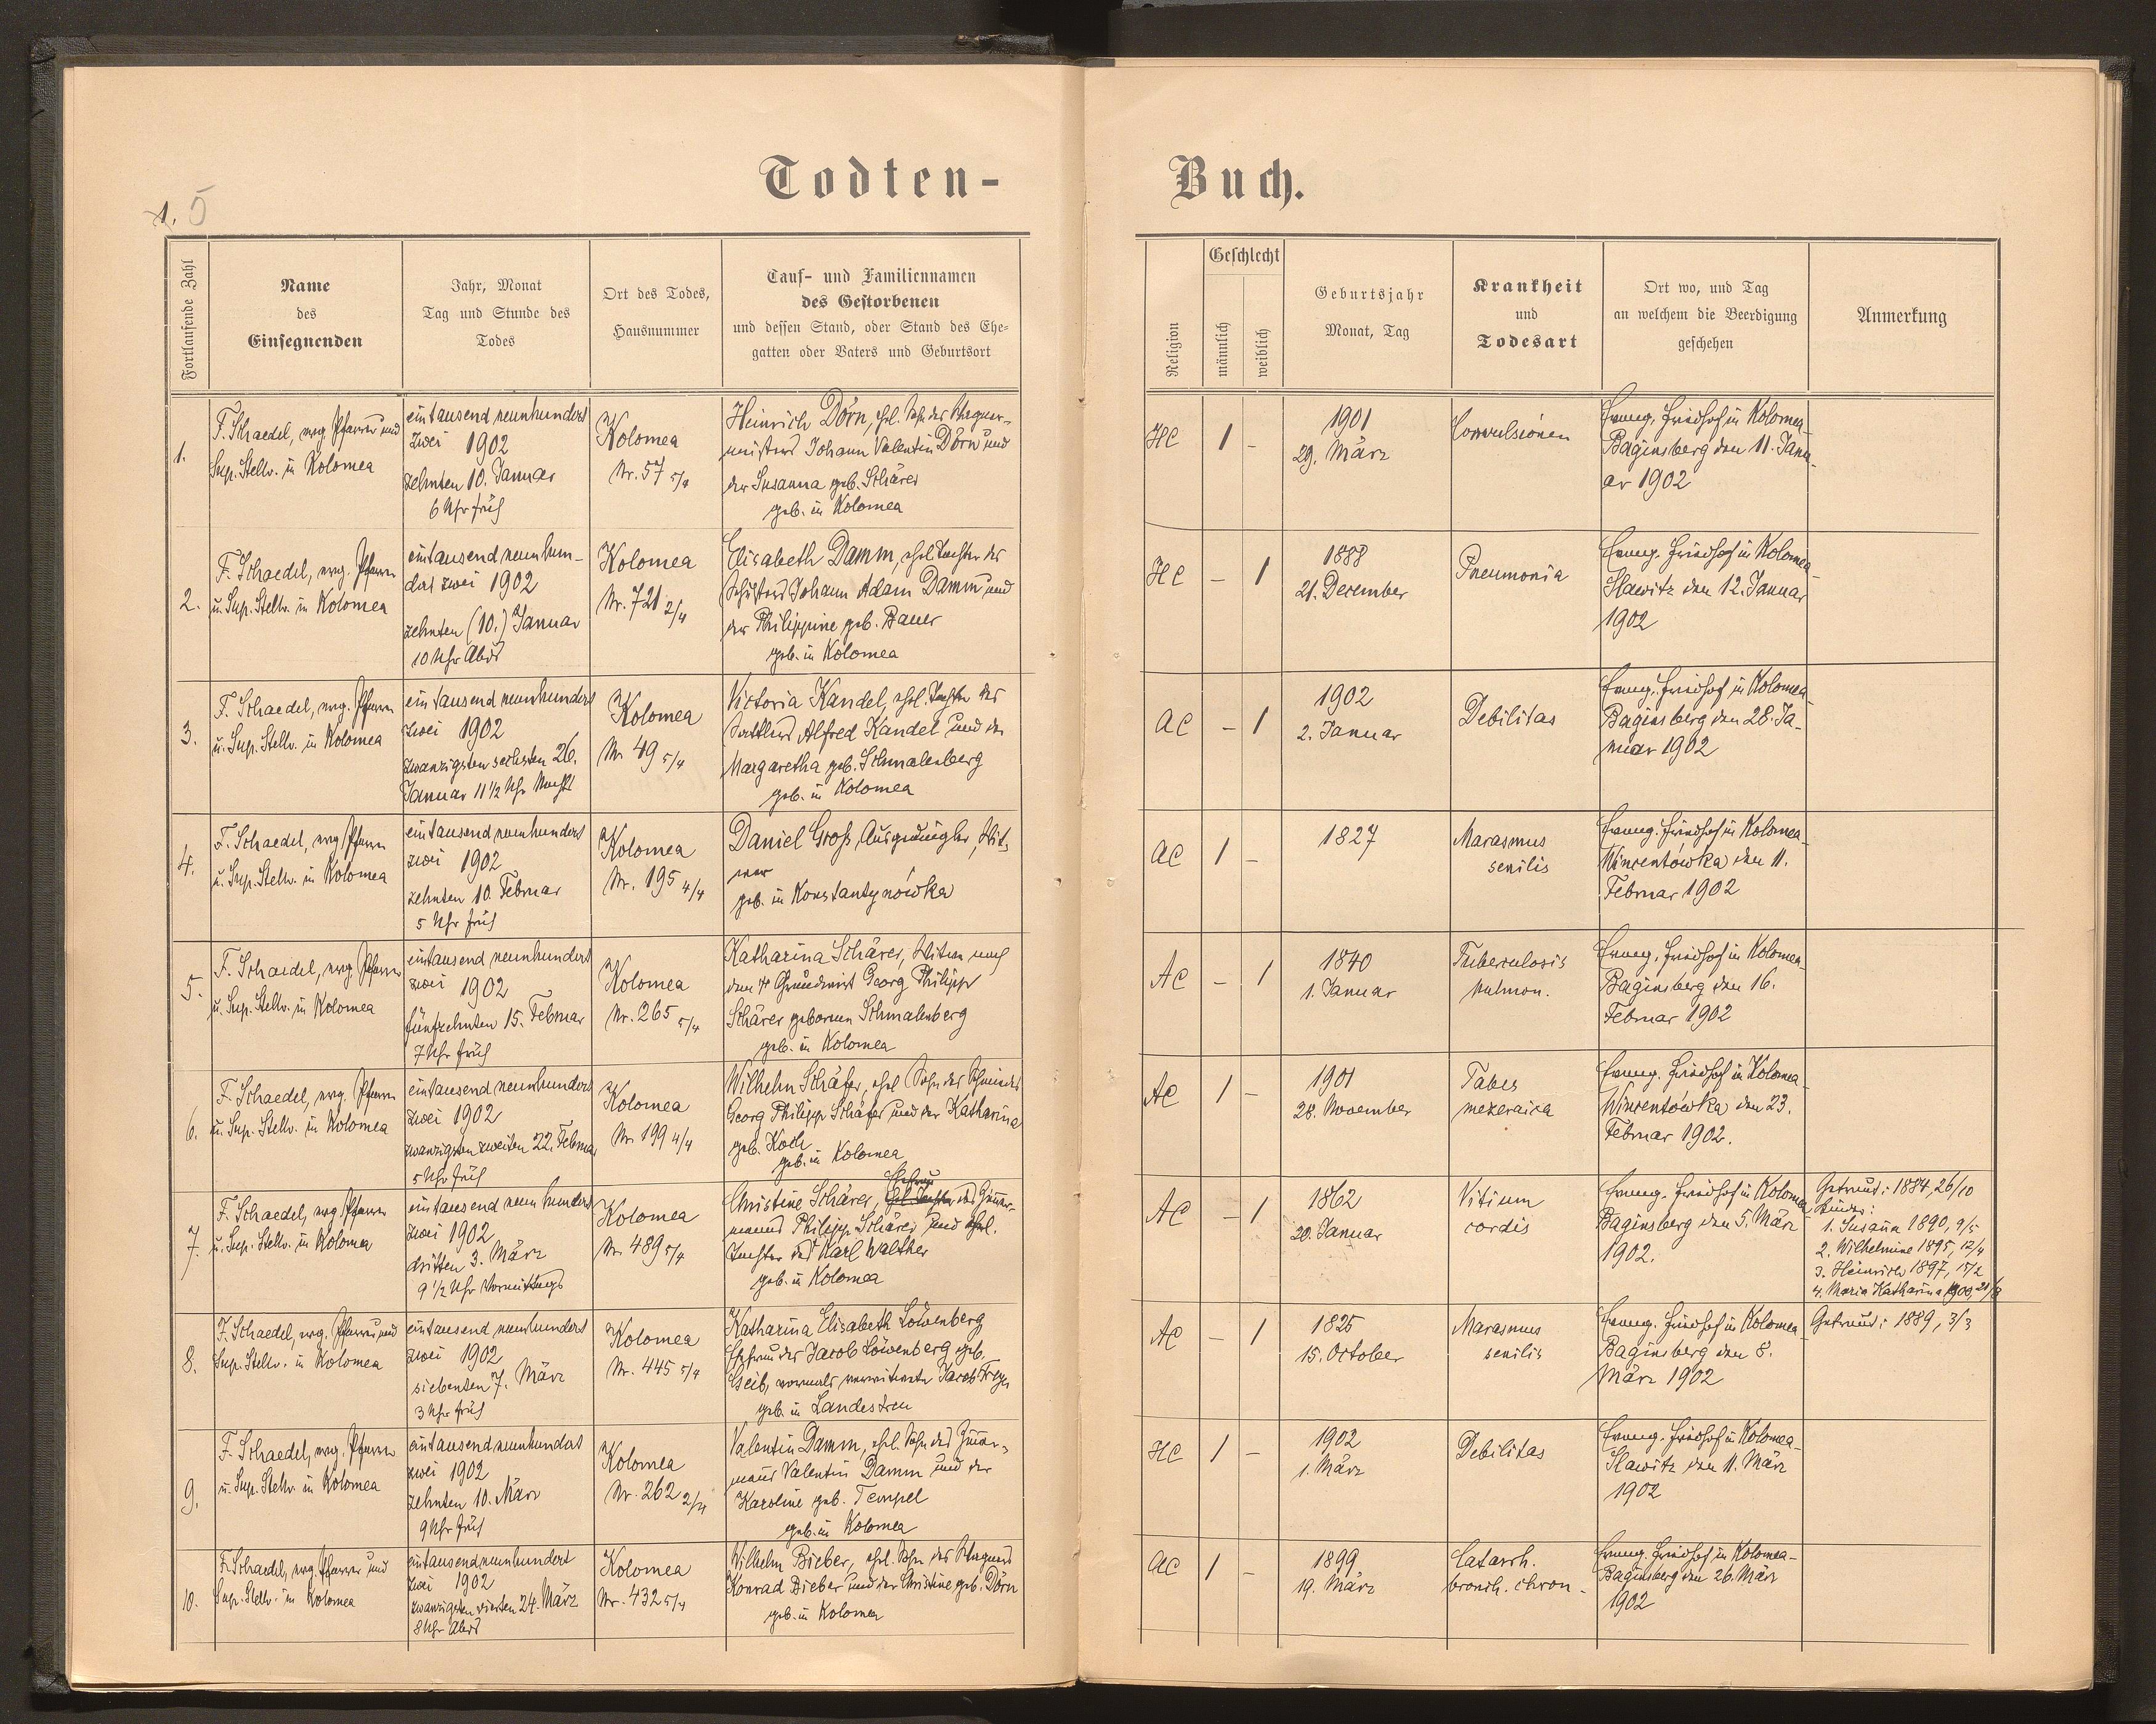 Todten-
Buch.
1. 5
Fortlaufende Zahl
Name
des
Einsegnenden
Jahr, Monat
Tag und Stunde des
Todes
Ort des Todes,
Hausnummer
Tauf- und Familiennamen
des Gestorbenen
und dessen Stand, oder Stand des Ehe-
gatten oder Vaters und Geburtsort
Religion
Geschlecht
männlich
weiblich
Geburtsjahr
Monat, Tag
Krankheit
und
Todesart
Ort wo, und Tag
an welchem die Beerdigung
geschehen
Anmerkung
1.
F. Schaedel, evg. Pfarrer und
Sup. Stellv. in Kolomea
eintausend neunhundert
zwei 1902
zehnten 10. Januar
6 Uhr früh
Kolomea
Nr. 57 5/4
Heinrich Dörn, ehl. Sohn des Wagner-
meisters Johann Valentin Dörn und
der Susanna geb. Schärer
geb. in Kolomea
HC
1
-
1901
29. März
Convulsionen
Evang. Friedhof in Kolomea-
Baginsberg den 11. Janu-
ar 1902
2.
F. Schaedel, evg. Pfarrer
u. Sup. Stellv. in Kolomea
eintausend neunhun-
dert zwei 1902
zehnten (10.) Januar
10 Uhr Abds
Kolomea
Nr. 721 2/4
Elisabeth Damm, ehel. Tochter des
Schusters Johann Adam Damm und
der Philippine geb. Bauer
geb. in Kolomea
HC
-
1
1888
21. December
Pneumonia
Evang. Friedhof in Kolomea-
Slawitz den 12. Januar
1902
3.
F. Schaedel, evg. Pfarrer
u. Sup. Stellv. in Kolomea
eintausend neunhundert
zwei 1902
zwanzigsten sechsten 26.
Januar 11 1/2 Uhr Nachts
Kolomea
Nr 49 5/4
Victoria Kandel, ehl. Tochter des
Sattlers Alfred Kandel und der
Margaretha geb. Schmalenberg
geb. in Kolomea
AC
-
1
1902
2. Januar
Debilitas
Evang. Friedhof in Kolomea-
Baginsberg den 28. Ja-
nuar 1902
4.
F. Schaedel, evg. Pfarrer
u. Sup. Stellv. in Kolomea
eintausend neunhundert
zwei 1902
zehnten 10. Februar
5 Uhr früh
Kolomea
Nr. 195 4/4
Daniel Groß, Ausgedingler, Wit-
wer
geb. in Konstantynówka
AC
1
-
1827
Marasmus
senilis
Evang. Friedhof in Kolomea-
Wincentówka den 11.
Februar 1902
5.
F. Schaedel, evg. Pfarrer
u. Sup. Stellv. in Kolomea
eintausend neunhundert
zwei 1902
fünfzehnten 15. Februar
7 Uhr früh
Kolomea
Nr. 265 5/4
Katharina Schärer, Witwe nach
dem † Grundwirt Georg Philipp
Schärer geborene Schmalenberg
geb. in Kolomea
AC
-
1
1840
1. Januar
Tuberculosis
pulmon.
Evang. Friedhof in Kolomea-
Baginsberg den 16.
Februar 1902
6.
F. Schaedel, evg. Pfarrer
u. Sup. Stellv. in Kolomea
eintausend neunhundert
zwei 1902
zwanzigsten zweiten 22. Februar
5 Uhr früh
Kolomea
Nr 199 4/4
Wilhelm Schäfer, ehel. Sohn des Schmiedes
Georg Philipp Schäfer und der Katharina
geb. Koch
geb. in Kolomea
AC
1
-
1901
28. November
Tabes
mezeraica
Evang. Friedhof in Kolomea-
Wincentówka den 23.
Februar 1902.
7.
F. Schaedel, evg. Pfarrer
u. Sup. Stellv. in Kolomea
eintausend neunhundert
zwei 1902
dritten 3. März
9 1/2 Uhr Vormittags
Kolomea
Nr. 489 5/4
Ehefrau
Christine Schärer, ehel. Tochter des Zimmer-
manns Philipp Schärer und ehel.
Tochter des Karl Walther
geb. in Kolomea
AC
-
1
1862
20. Januar
Vitium
cordis
Evang. Friedhof in Kolomea-
Baginsberg den 5. März
1902.
Getraut: 1884, 26/10
Kinder:
1. Susanna 1890, 9/5
2. Wilhelmine 1895, 12/4
3. Heinrich 1897, 17/2
4. Maria Katharina 1900, 21/8
8.
F. Schaedel, evg. Pfarrer und
Sup. Stellv. in Kolomea
eintausend neunhundert
zwei 1902
siebenten 7. März
3 Uhr früh
Kolomea
Nr. 445 5/4
Katharina Elisabeth Löwenberg
Ehefrau des Jacob Löwenberg geb.
Geib, vormals verwitwete Jacob Frey
geb. in Landestreu
AC
-
1
1825
15. October
Marasmus
senilis
Evang. Friedhof in Kolomea-
Baginsberg den 8.
März 1902
Getraut: 1889, 3/3
9.
F. Schaedel, evg. Pfarrer
u. Sup. Stellv. in Kolomea
eintausend neunhundert
zwei 1902
zehnten 10. März
9 Uhr früh
Kolomea
Nr. 262 2/4
Valentin Damm, ehl. Sohn des Zimmer-
manns Valentin Damm und der
Karoline geb. Tempel
geb. in Kolomea
HC
1
-
1902
1. März
Debilitas
Evang. Friedhof in Kolomea-
Slawitz den 11. März
1902
10.
F. Schaedel, evg. Pfarrer und
Sup. Stellv. in Kolomea
eintausend neunhundert
zwei 1902
zwanzigsten vierten 24. März
8 Uhr Abds
Kolomea
Nr. 432 5/4
Wilhelm Bieber, ehel. Sohn des Wagners
Konrad Bieber und der Christine geb. Dörn
geb. in Kolomea
AC
1
-
1899
19. März
Catarrh.
bronch. chron.
Evang. Friedhof in Kolomea-
Baginsberg den 26. März
1902